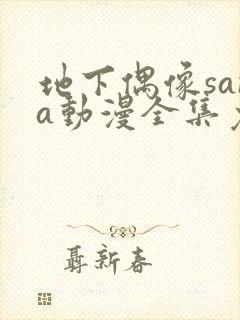 地下偶像sa
a動漫全集
聶新春